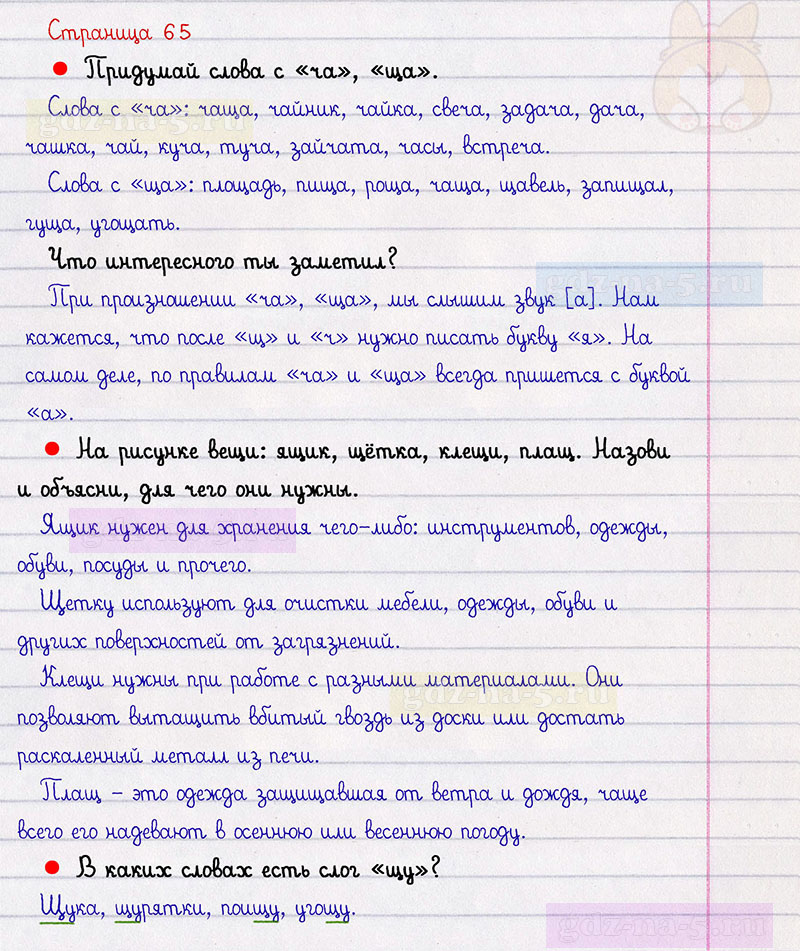 Страница 65
● Придумай слова с «ча», «ща».
Слова с «ча»: чаща, чайник, чайка, свеча, задача, дача,
чашка, чай, куча, туча, зайчата, часы, встреча.
Слова с «ща»: площадь, пища, роща, чаща, щавель, запищал,
гуща, угощать.
Что интересного ты заметил?
При произношении «ча», «ща», мы слышим звук [а]. Нам
кажется, что после «щ» и «ч» нужно писать букву «я». На
самом деле, по правилам «ча» и «ща» всегда пришется с буквой
«а».
● На рисунке вещи: ящик, щётка, клещи, плащ. Назови
и объясни, для чего они нужны.
Ящик нужен для хранения чего-либо: инструментов, одежды,
обуви, посуды и прочего.
Щетку используют для очистки мебели, одежды, обуви и
других поверхностей от загрязнений.
Клещи нужны при работе с разными материалами. Они
позволяют вытащить вбитый гвоздь из доски или достать
раскаленный металл из печи.
Плащ – это одежда защищавшая от ветра и дождя, чаще
всего его надевают в осеннюю или весеннюю погоду.
● В каких словах есть слог «щу»?
Щука, щурятки, поищу, угощу.
gdz-na-5.ru
gdz-na-5.ru
gdz-na-5.ru
gdz-na-5.ru
gdz-na-5.ru